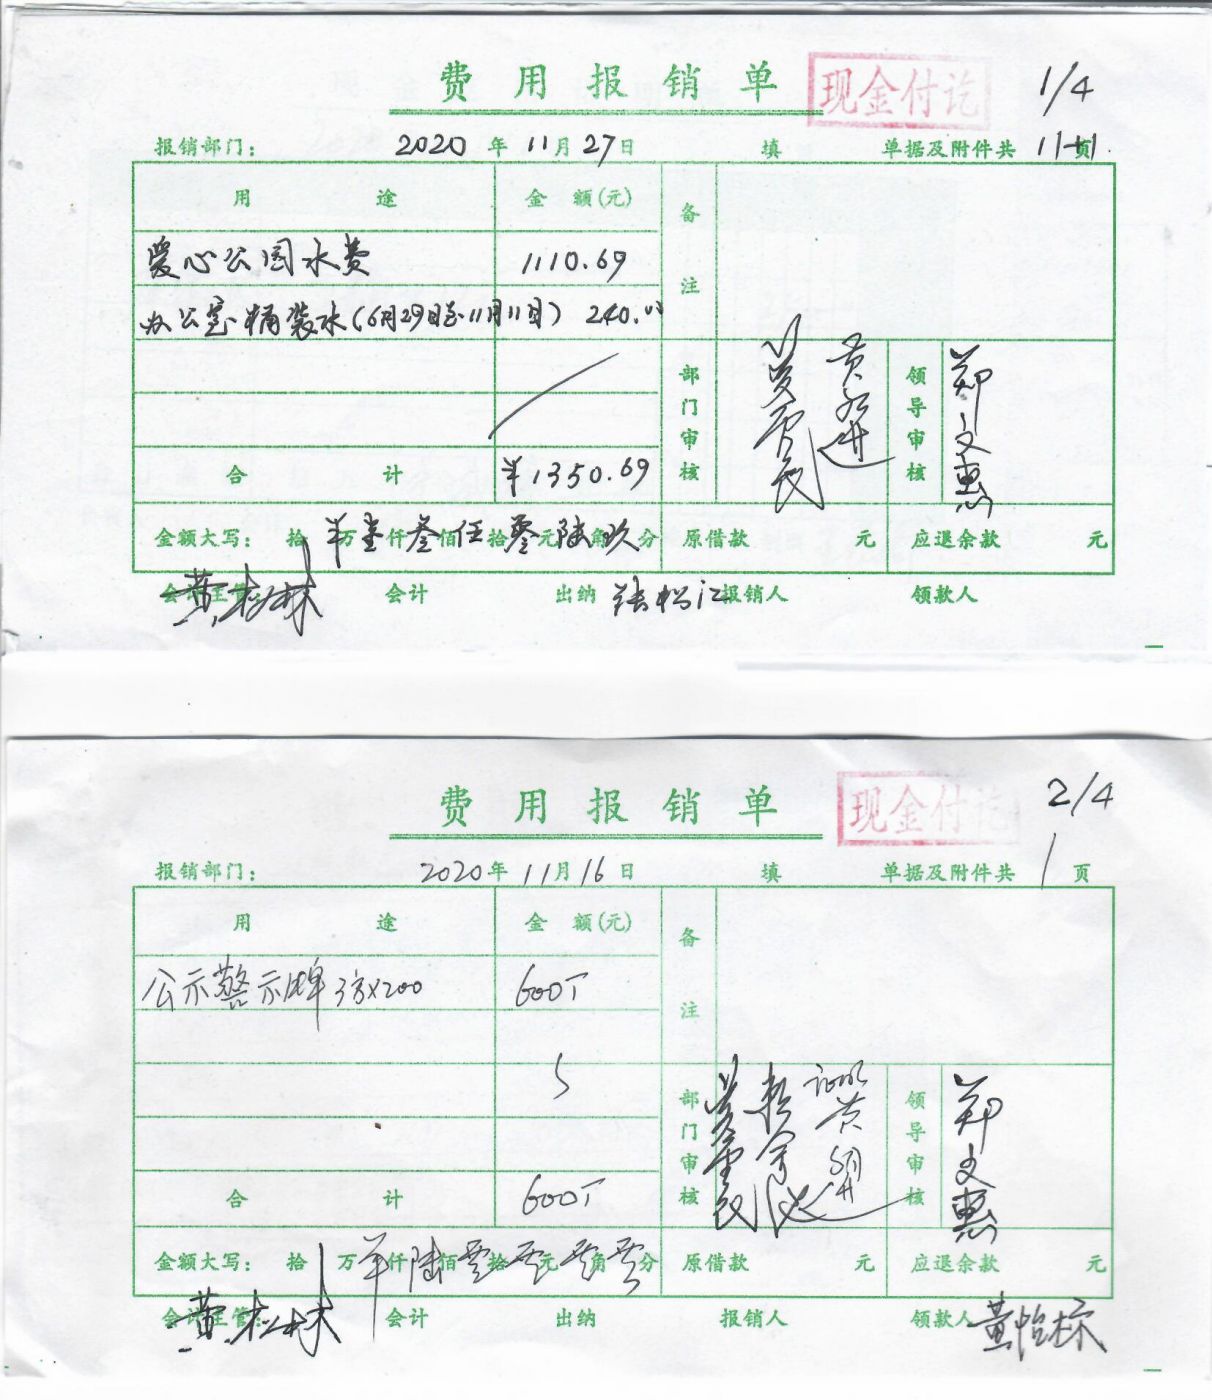 费用报销单 现金付讫 1/4
报销部门： 2020年11月27日 填 单据及附件共11页
用途 金额(元) 备注
爱心公园水费 1110.69
办公室桶装水(6月29日至11月11日) 240.00
部门审核 黄永进 领导审核 郑文惠
合计 ¥1350.69
金额大写： 拾 ¥万壹仟叁佰伍拾零元陆角玖分 原借款 元 应退余款 元
会计主管 黄松林 会计 出纳 陆松江 报销人 领款人
费用报销单 现金付讫 2/4
报销部门： 2020年11月16日 填 单据及附件共1页
用途 金额(元) 备注
公示警示牌3方×200 600
部门审核 证明 黄 领导审核 郑文惠
合计 600
金额大写： 拾 万¥仟陆佰零拾零元零角零分 原借款 元 应退余款 元
会计主管 黄松林 会计 出纳 报销人 领款人 黄怡标